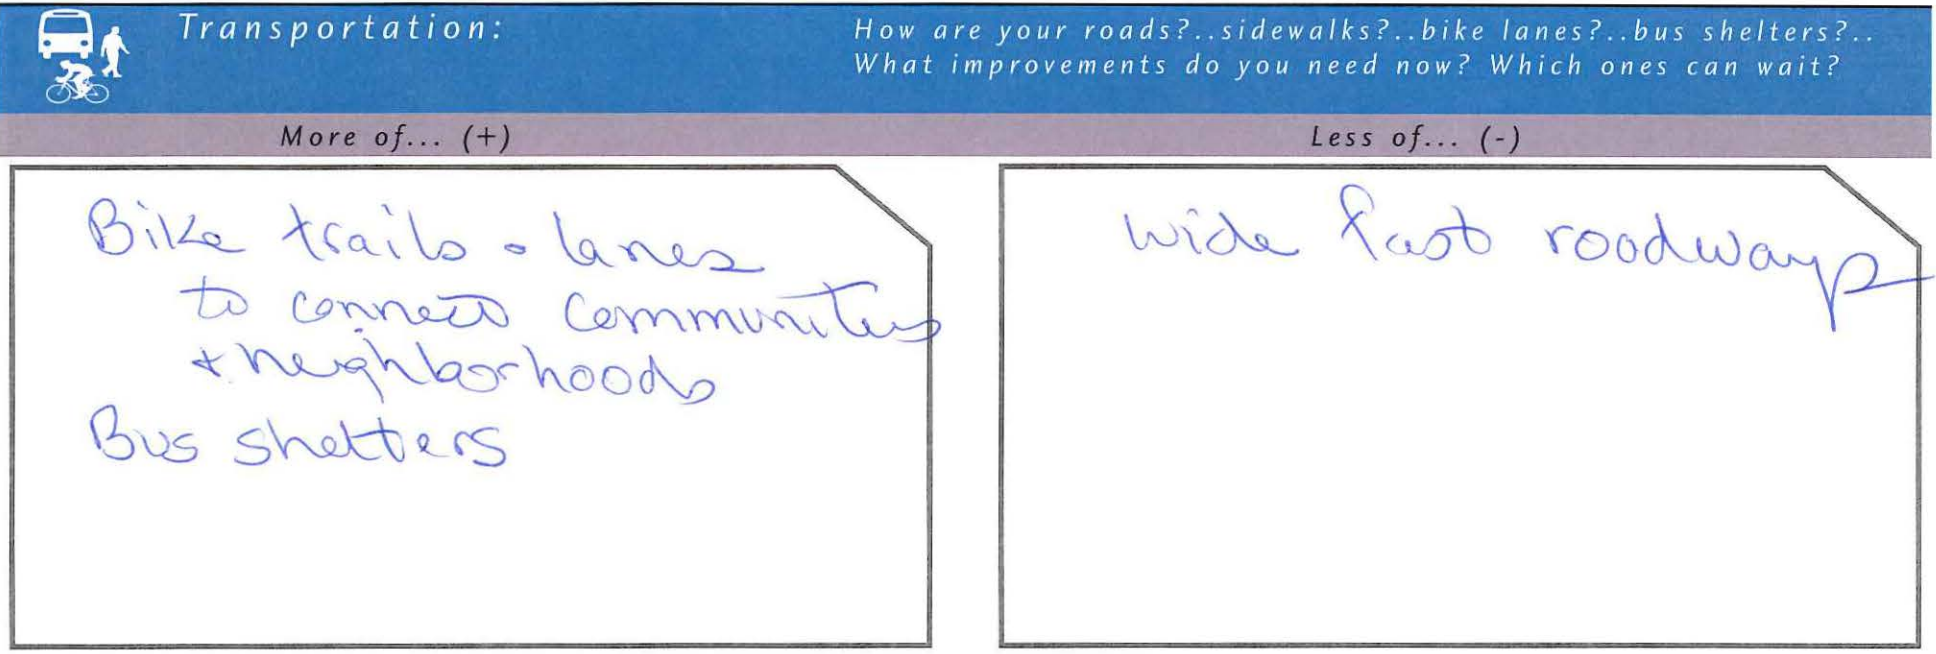 Transportation:
How are your roads?..sidewalks?..bike lanes?..bus shelters?..
What improvements do you need now? Which ones can wait?
More of... (+)
Less of... (-)
Bike trails - lanes
to connect communities
+ neighborhoods
Bus shelters
wide fast roadways